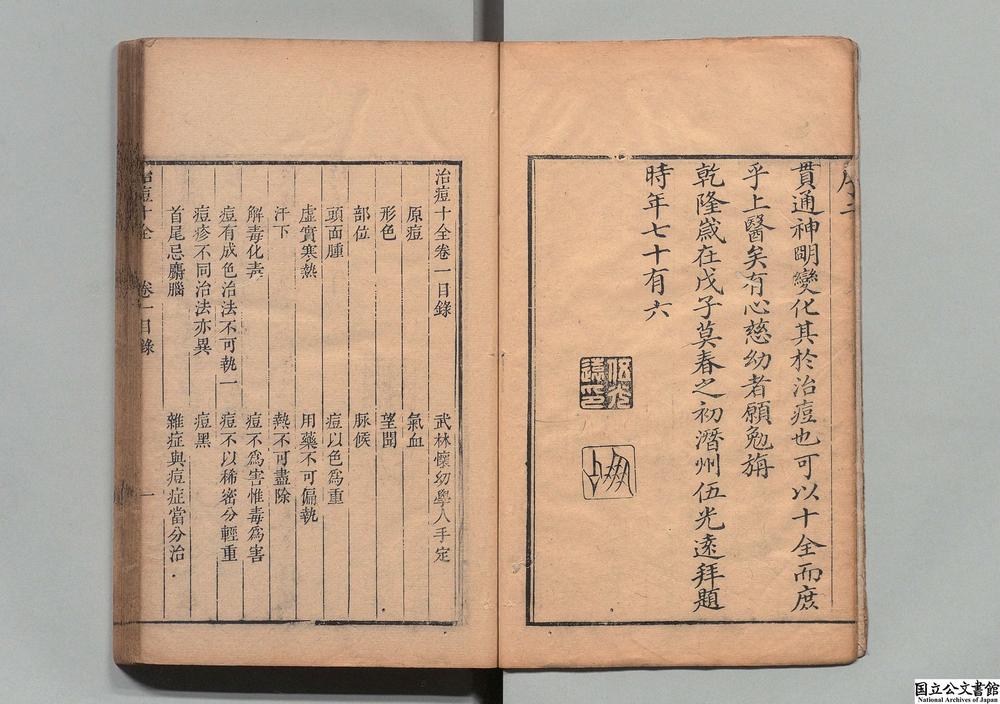 貫通神明變化其於治痘也可以十全而庶
乎上醫矣有心慈幼者願勉旃
乾隆歲在戊子莫春之初潛州伍光遠拜題
時年七十有六
治痘十全卷一目錄
武林懷幼學人手定
原痘
氣血
形色
望聞
部位
脉候
頭面腫
痘以色爲重
虛實寒熱
用藥不可偏執
汗下
熱不可盡除
解毒化毒
痘不爲害惟毒爲害
痘有成色治法不可執一
痘不以稀密分輕重
痘疹不同治法亦異
痘黑
首尾忌麝腦
雜症與痘症當分治
治痘十全
卷一目錄
一
国立公文書館
National Archives of Japan